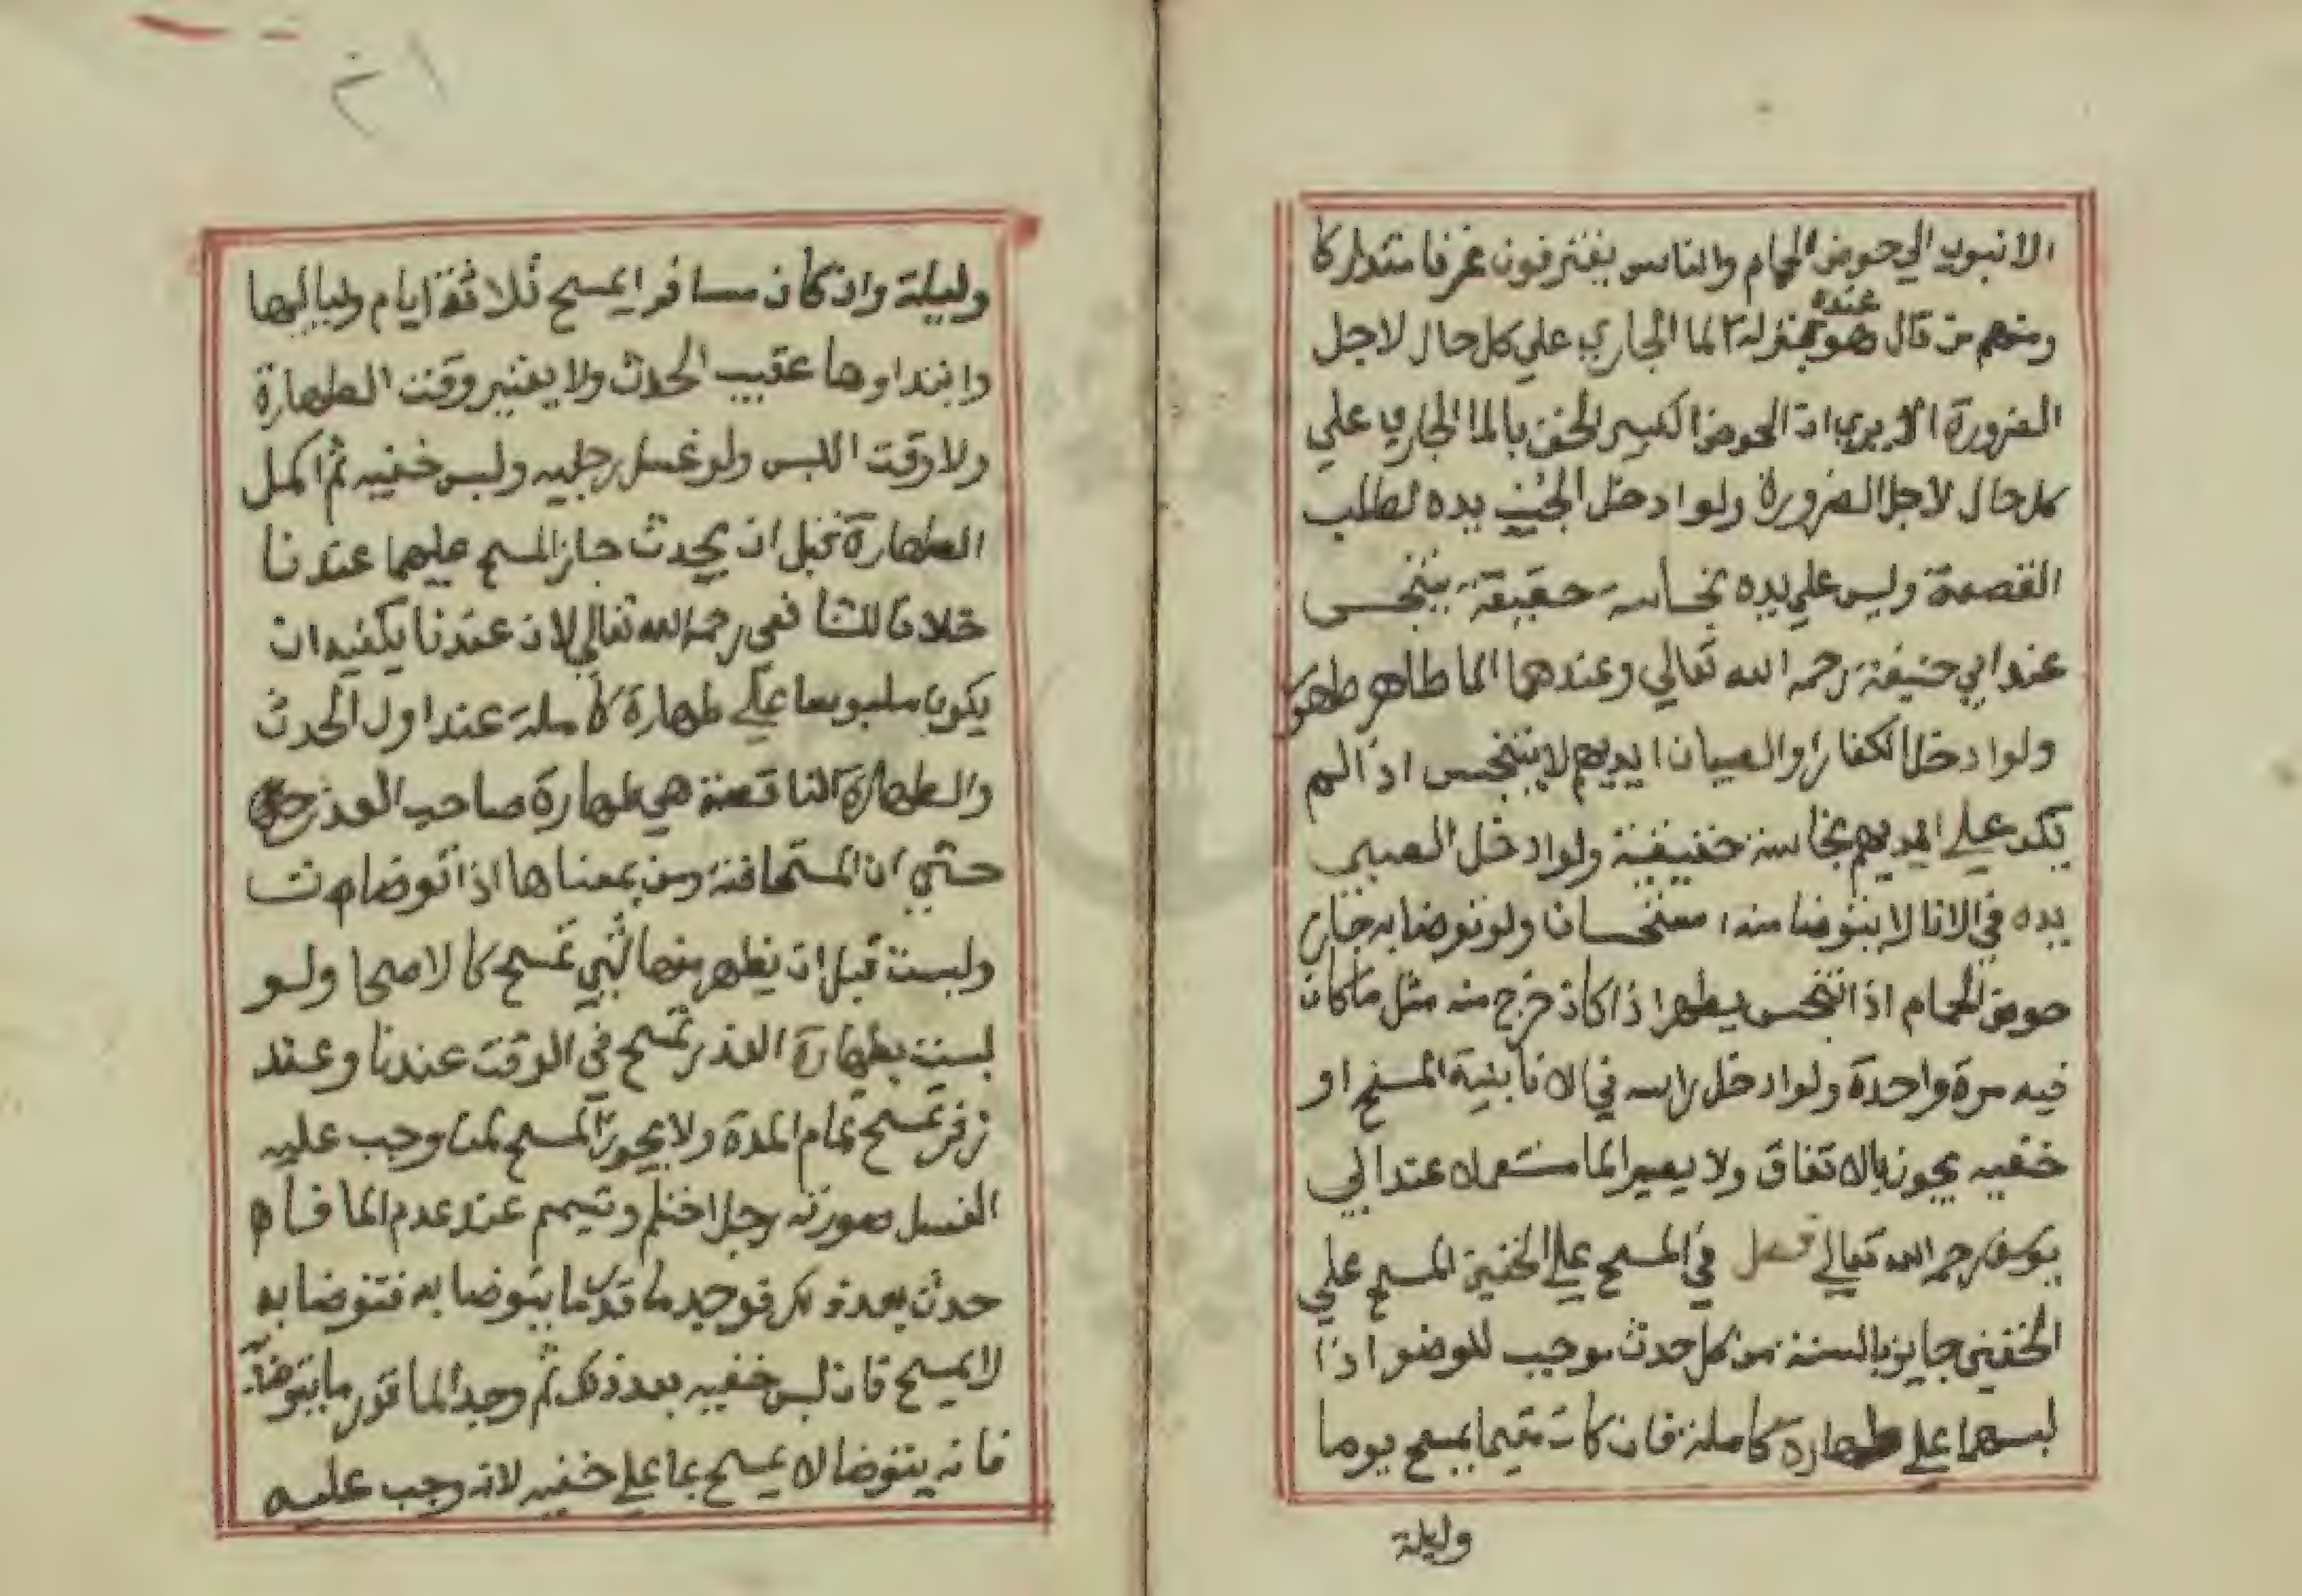 الانبوب الي حوض الحمام والناس يغترفون غرفا متداركا
ومنهم من قال هو عنده بمنزلة الما الجاري علي كل حال لاجل
الضرورة الا يري ان الحوض الكبير الحق بالما الجاري علي
كل حال لاجل الضرورة ولو ادخل الجنب يده لطلب
القصعة وليس علي يده نجاسة حقيقة يتنجس
عند ابي حنيفة رحمه الله تعالي وعندهما الما طاهر طهور
ولو ادخل الكفار والصبيان ايديهم لا يتنجس اذا لم
يكن علي ايديهم نجاسة حقيقية ولو ادخل الصبي
يده في الانا لا يتوضا منه استحسانا ولو توضا به جاز
حوض الحمام اذا تنجس يطهر اذا كان خرج منه مثل ما كان
فيه مرة واحدة ولو ادخل راسه في الانا بنية المسح او
خفيه يجوز بالاتفاق ولا يصير الما مستعملا عند ابي
يوسف رحمه الله تعالي فصل في المسح علي الخفين المسح علي
الخفين جايز بالسنة من كل حدث موجب للوضو اذا
لبسهما علي طهارة كاملة فان كان مقيما يمسح يوما
وليلة
٢١
وليلة وان كان مسافر ايمسح ثلاثة ايام ولياليها
وابتداوها عقيب الحدث ولا يعتبر وقت الطهارة
ولا وقت اللبس ولو غسل رجليه ولبس خفيه ثم اكمل
الطهارة قبل ان يحدث جاز المسح عليهما عندنا
خلافا للشافعي رحمه الله تعالي لان عندنا يكفيه ان
يكون ملبوسا علي طهارة كاملة عند اول الحدث
والطهارة الناقصة هي طهارة صاحب العذر
حتي ان المستحاضة ومن بمعناها اذا توضات
ولبست قبل ان يظهر منها شي تمسح كالاصحا ولو
لبست بطهارة العذر تمسح في الوقت عندنا وعند
زفر تمسح تمام المدة ولا يجوز المسح لمن وجب عليه
الغسل صورته رجل احتلم وتيمم عند عدم الما
حدث بعد ذلك فوجد ما قدر ما يتوضا به فتوضا به
لا يمسح فان لبس خفيه بعد ذلك ثم وجد الما قدر ما يتوضا
فانه يتوضا لا يمسح بما علي خفيه لانه وجب عليه